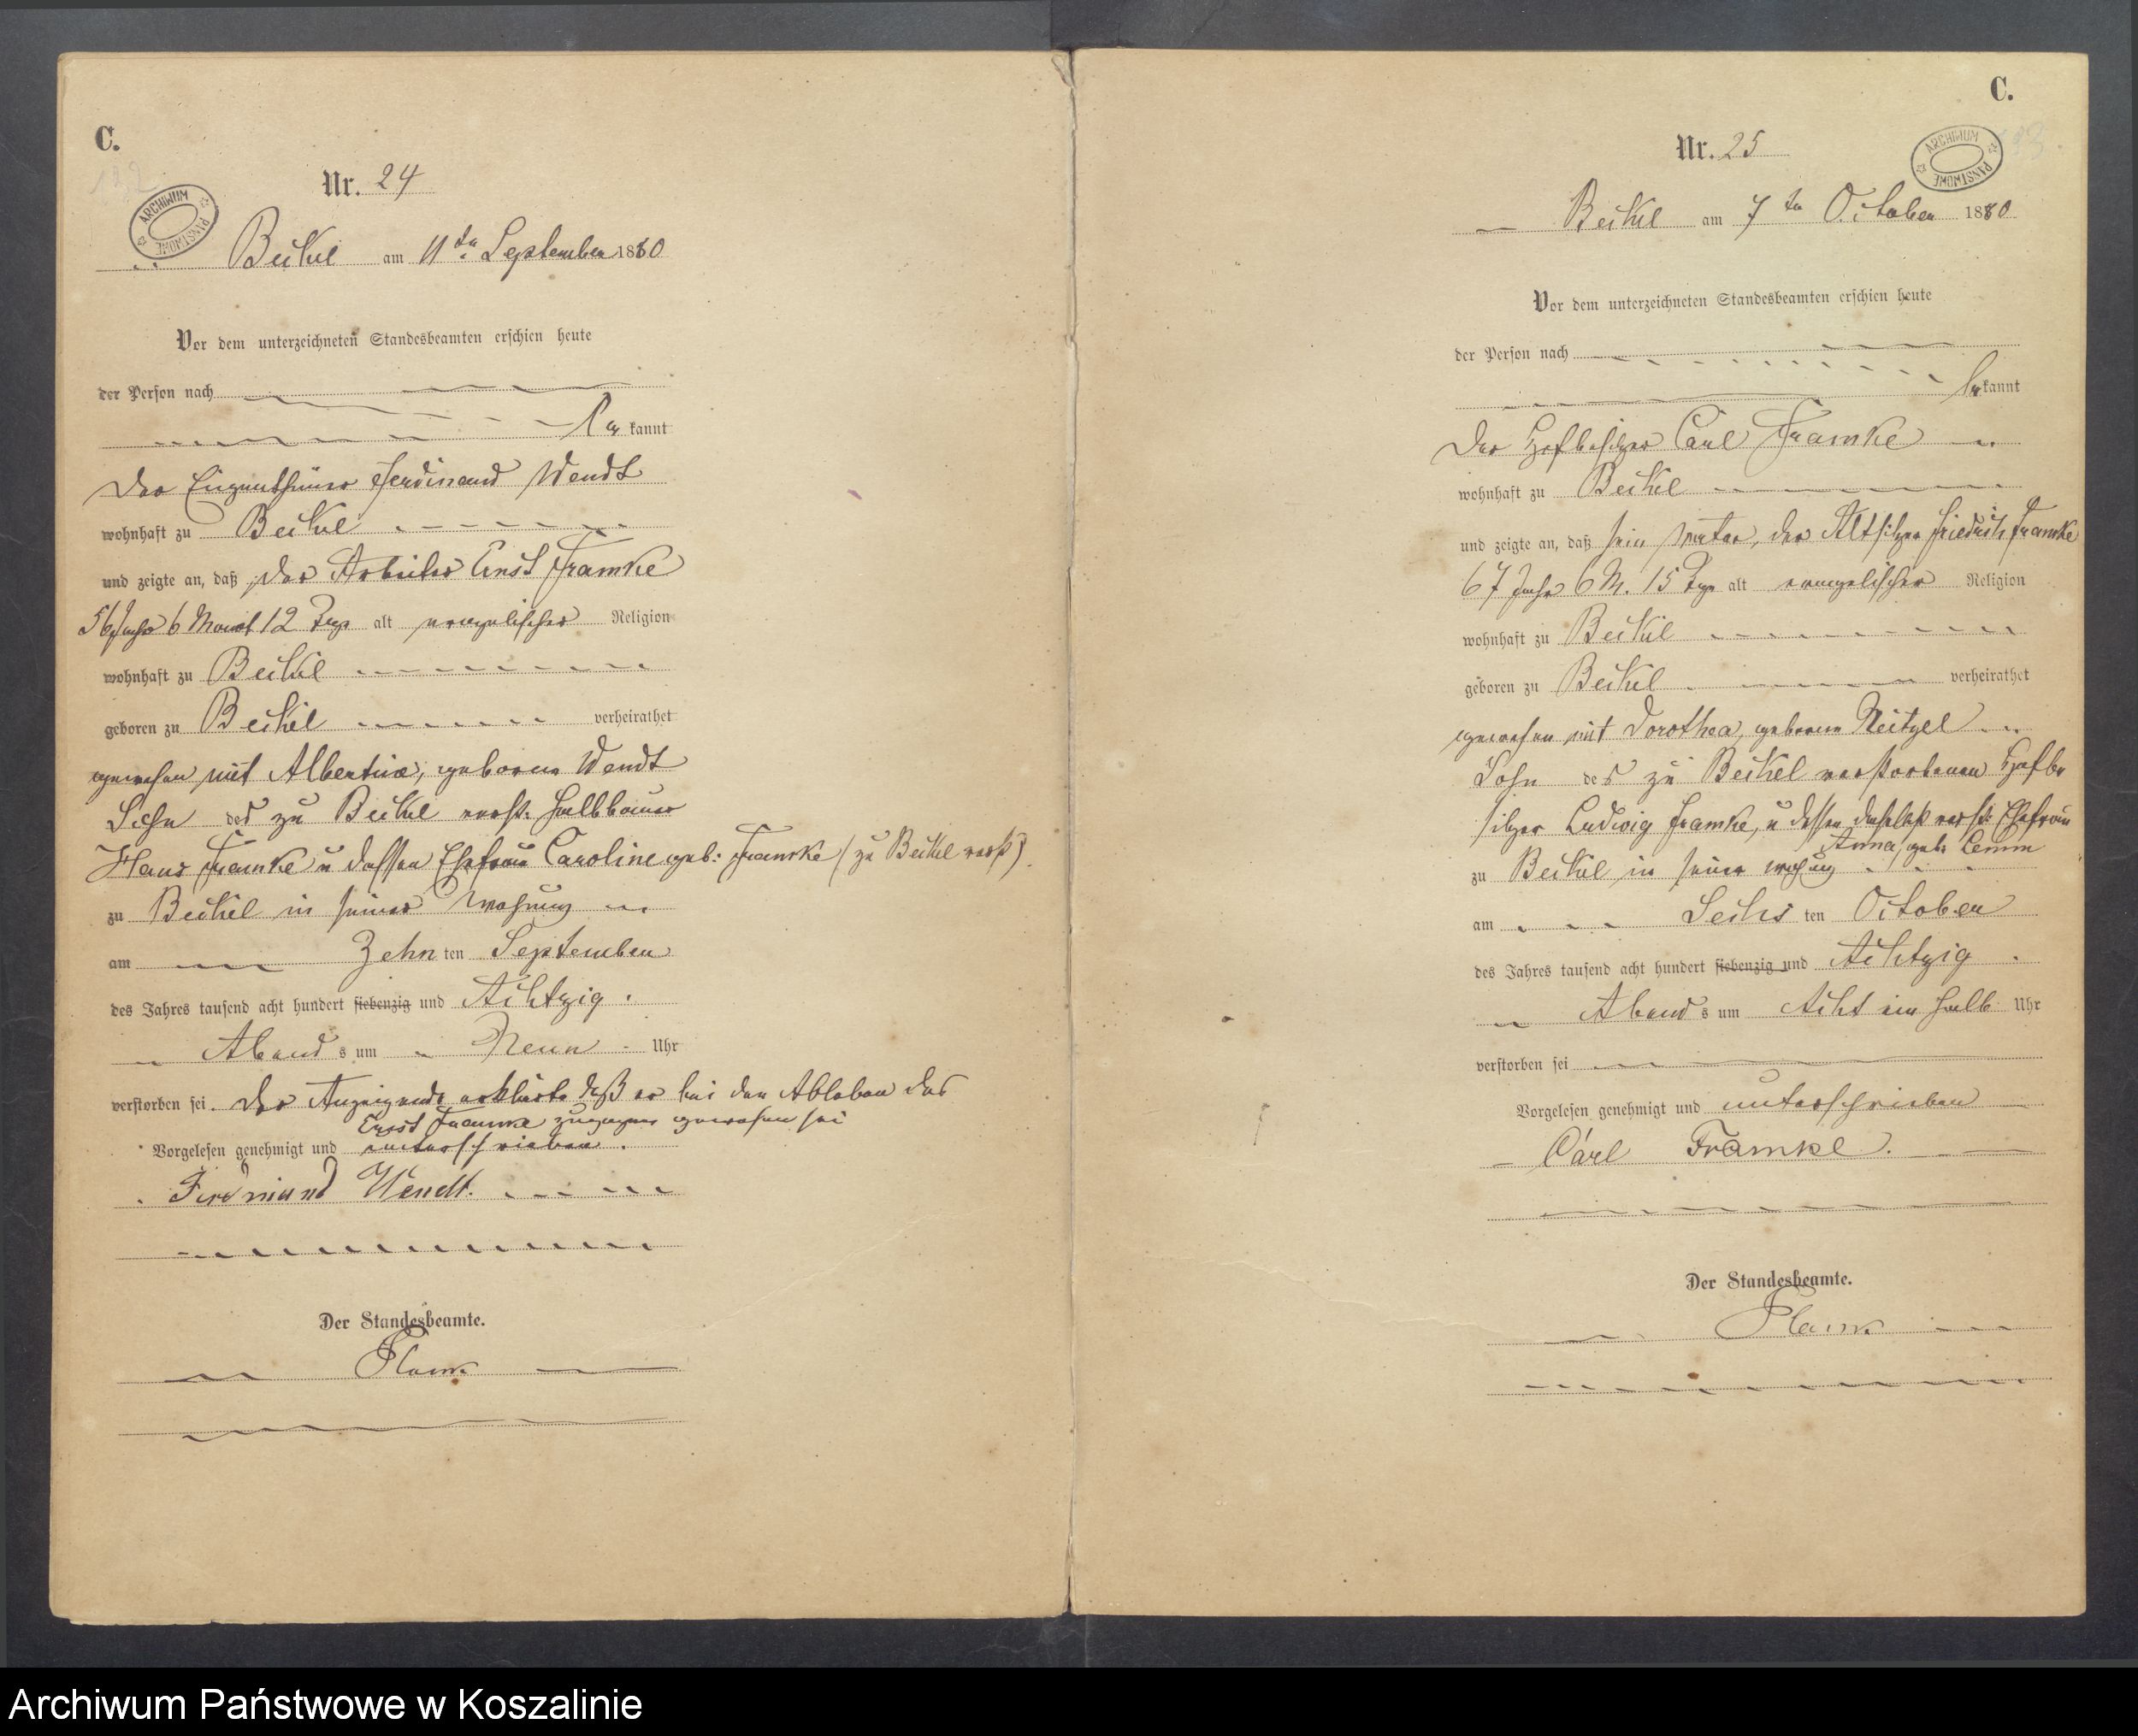 C.
122
ARCHIWUM PAŃSTWOWE
Nr. 24
Beikel am 11ten September 1880
Vor dem unterzeichneten Standesbeamten erschien heute
der Person nach
bekannt
der Eigenthümer Ferdinand Wendt
wohnhaft zu Beikel
und zeigte an, daß der Arbeiter Ernst Framke
56 Jahr 6 Monat 12 Tage alt evangelischer Religion
wohnhaft zu Beikel
geboren zu Beikel verheirathet
gewesen mit Albertine, geborene Wendt
Sohn des zu Beikel verst: Halbbauer
Hans Framke u dessen Ehefrau Caroline geb: Framke (zu Beikel verst)
zu Beikel in seiner Wohnung
am Zehn ten September
des Jahres tausend acht hundert siebenzig und Achtzig
Abend s um Neun Uhr
verstorben sei. Der Anzeigende erklärte daß er bei dem Ableben des
Ernst Framke zugegen gewesen sei
Vorgelesen genehmigt und unterschrieben.
Ferdinand Wendt.
Der Standesbeamte.
C.
ARCHIWUM PAŃSTWOWE
Nr. 25
Beikel am 7ten October 1880
Vor dem unterzeichneten Standesbeamten erschien heute
der Person nach
bekannt
der Hofbesitzer Carl Framke
wohnhaft zu Beikel
und zeigte an, daß sein Vater, der Altsitzer Friedrich Framke
67 Jahr 6 M. 15 Tage alt evangelischer Religion
wohnhaft zu Beikel
geboren zu Beikel verheirathet
gewesen mit Dorothea, geborene Neitzel
Sohn des zu Beikel verstorbenen Hofbe
sitzer Ludwig Framke, u dessen daselbst verst: Ehefrau
Anna, geb: Lemm
zu Beikel in seiner Wohnung
am Sechs ten October
des Jahres tausend acht hundert siebenzig und Achtzig
Abend s um Acht ein halb Uhr
verstorben sei
Vorgelesen genehmigt und unterschrieben
Carl Framke.
Der Standesbeamte.
Archiwum Państwowe w Koszalinie